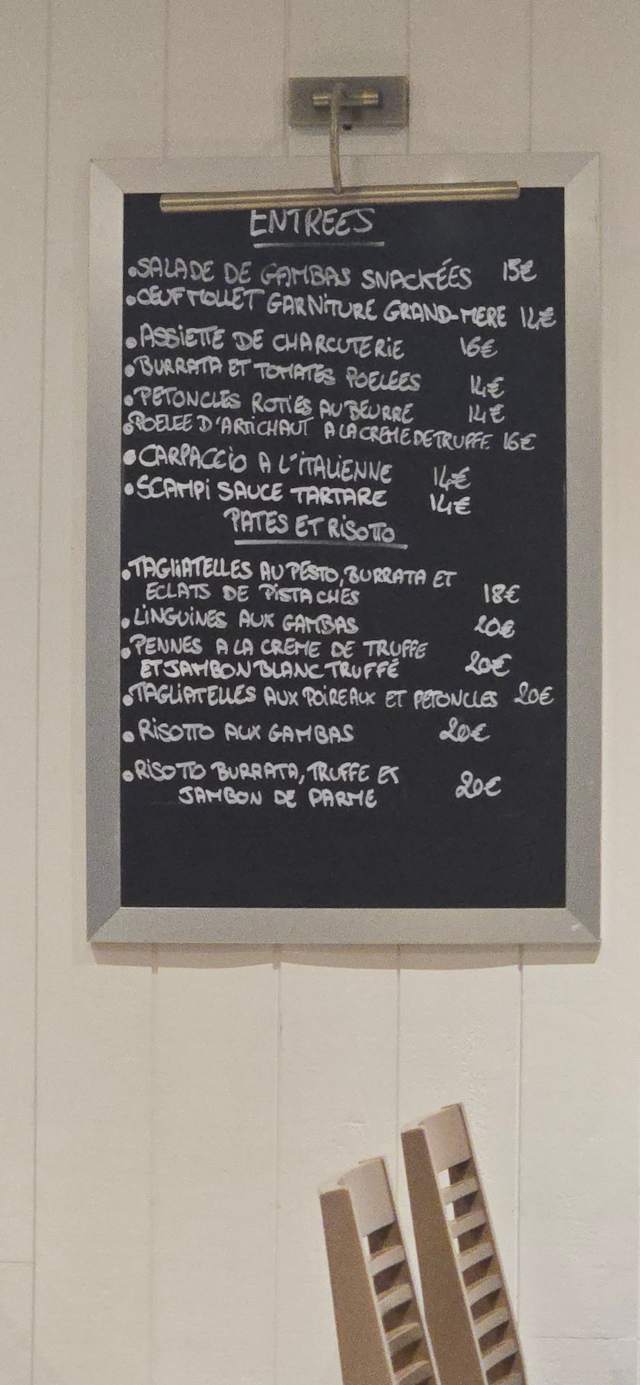 ENTREES
•SALADE DE GAMBAS SNACKÉES 15€
•OEUF MOLLET GARNITURE GRAND-MERE 14€
•ASSIETTE DE CHARCUTERIE 16€
•BURRATA ET TOMATES POELEES 14€
•PETONCLES ROTIES AU BEURRE 14€
•POELEE D'ARTICHAUT A LA CREME DE TRUFFE 16€
•CARPACCIO A L'ITALIENNE 14€
•SCAMPI SAUCE TARTARE 14€
PATES ET RISOTTO
•TAGLIATELLES AU PESTO, BURRATA ET
ECLATS DE PISTACHES 18€
•LINGUINES AUX GAMBAS 20€
•PENNES A LA CREME DE TRUFFE
ET JAMBON BLANC TRUFFÉ 20€
•TAGLIATELLES AUX POIREAUX ET PETONCLES 20€
•RISOTTO AUX GAMBAS 20€
•RISOTTO BURRATA, TRUFFE ET
JAMBON DE PARME 20€